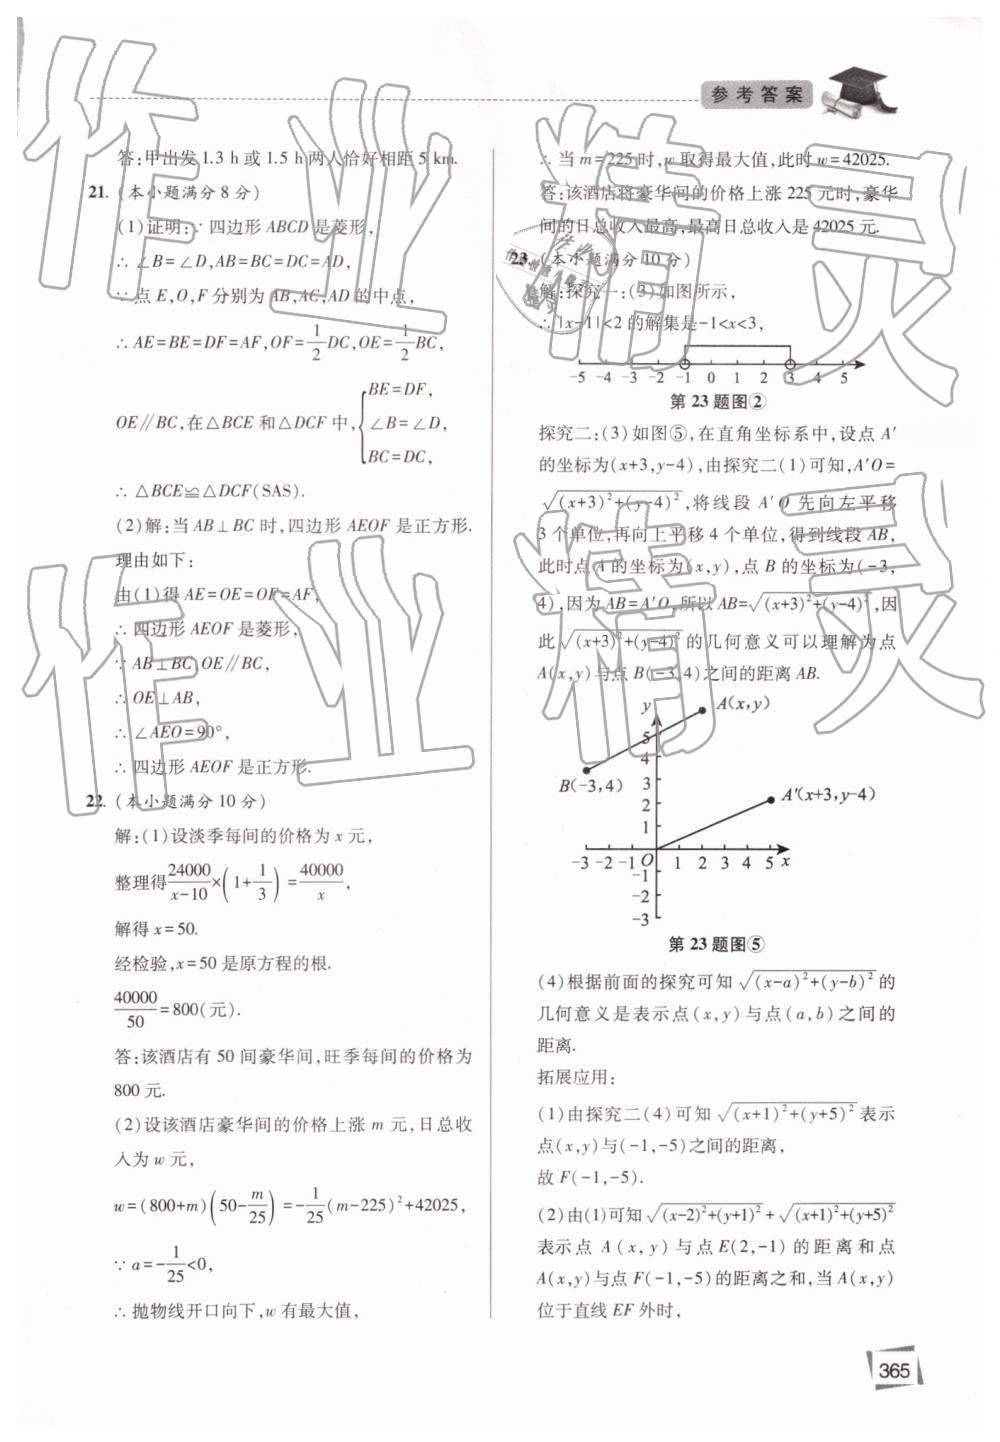 参考答案
答:甲出发1.3 h或1.5 h两人恰好相距5 km.
21. (本小题满分8分)
(1)证明:∵四边形ABCD是菱形,
∴∠B=∠D,AB=BC=DC=AD,
∵点E,O,F分别为AB,AC,AD的中点,
∴AE=BE=DF=AF,OF=1/2DC,OE=1/2BC,
OE∥BC,在△BCE和△DCF中,{BE=DF,
∠B=∠D,
BC=DC,
∴△BCE≌△DCF(SAS).
(2)解:当AB⊥BC时,四边形AEOF是正方形.
理由如下:
由(1)得AE=OE=OF=AF,
∴四边形AEOF是菱形,
∵AB⊥BC,OE∥BC,
∴OE⊥AB,
∴∠AEO=90°,
∴四边形AEOF是正方形.
22. (本小题满分10分)
解:(1)设淡季每间的价格为x元,
整理得24000/(x-10)×(1+1/3)=40000/x,
解得x=50.
经检验,x=50是原方程的根.
40000/50=800(元).
答:该酒店有50间豪华间,旺季每间的价格为
800元.
(2)设该酒店豪华间的价格上涨m元,日总收
入为w元,
w=(800+m)(50-m/25)=-1/25(m-225)²+42025,
∵a=-1/25<0,
∴抛物线开口向下,w有最大值,
∴当m=225时,w取得最大值,此时w=42025.
答:该酒店将豪华间的价格上涨225元时,豪华
间的日总收入最高,最高日总收入是42025元.
23. (本小题满分10分)
解:探究一:(3)如图所示,
∴|x-1|<2的解集是-1<x<3,
-5 -4 -3 -2 -1 0 1 2 3 4 5
第23题图②
探究二:(3)如图⑤,在直角坐标系中,设点A′
的坐标为(x+3,y-4),由探究二(1)可知,A′O=
√((x+3)²+(y-4)²),将线段A′O先向左平移
3个单位,再向上平移4个单位,得到线段AB,
此时点A的坐标为(x,y),点B的坐标为(-3,
4),因为AB=A′O,所以AB=√((x+3)²+(y-4)²),因
此√((x+3)²+(y-4)²)的几何意义可以理解为点
A(x,y)与点B(-3,4)之间的距离AB.
y
A(x,y)
5
4
B(-3,4)
3
2
A′(x+3,y-4)
1
-3 -2 -1 O 1 2 3 4 5 x
-1
-2
-3
第23题图⑤
(4)根据前面的探究可知√((x-a)²+(y-b)²)的
几何意义是表示点(x,y)与点(a,b)之间的
距离.
拓展应用:
(1)由探究二(4)可知√((x+1)²+(y+5)²)表示
点(x,y)与(-1,-5)之间的距离,
故F(-1,-5).
(2)由(1)可知√((x-2)²+(y+1)²)+√((x+1)²+(y+5)²)
表示点A(x,y)与点E(2,-1)的距离和点
A(x,y)与点F(-1,-5)的距离之和,当A(x,y)
位于直线EF外时,
365
作业精灵
作业精灵